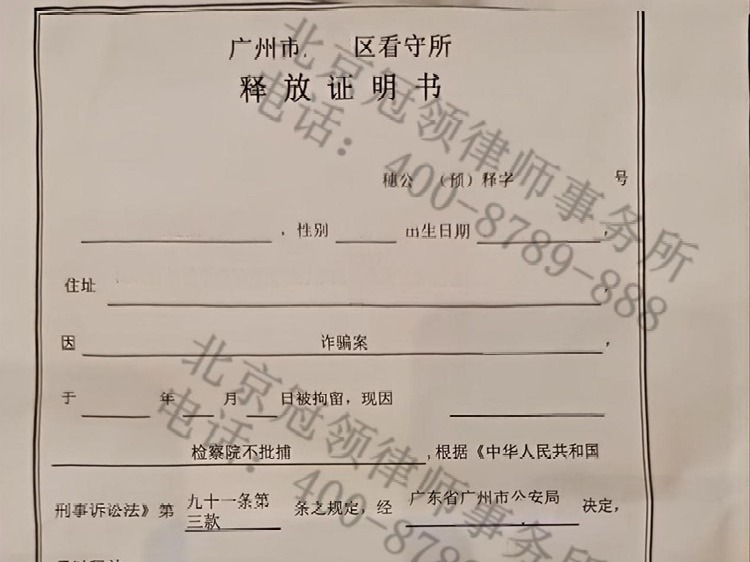 广州市 区看守所
释放证明书
穗公 (预)释字 号
,性别 出生日期 ,
住址 ,
因 诈骗案 ,
于 年 月 日被拘留,现因
检察院不批捕 ,根据《中华人民共和国
刑事诉讼法》第 九十一条第三款 条之规定,经 广东省广州市公安局 决定,
北京冠领律师事务所
电话:400-8789-888
北京冠领律师事务所
电话:400-878